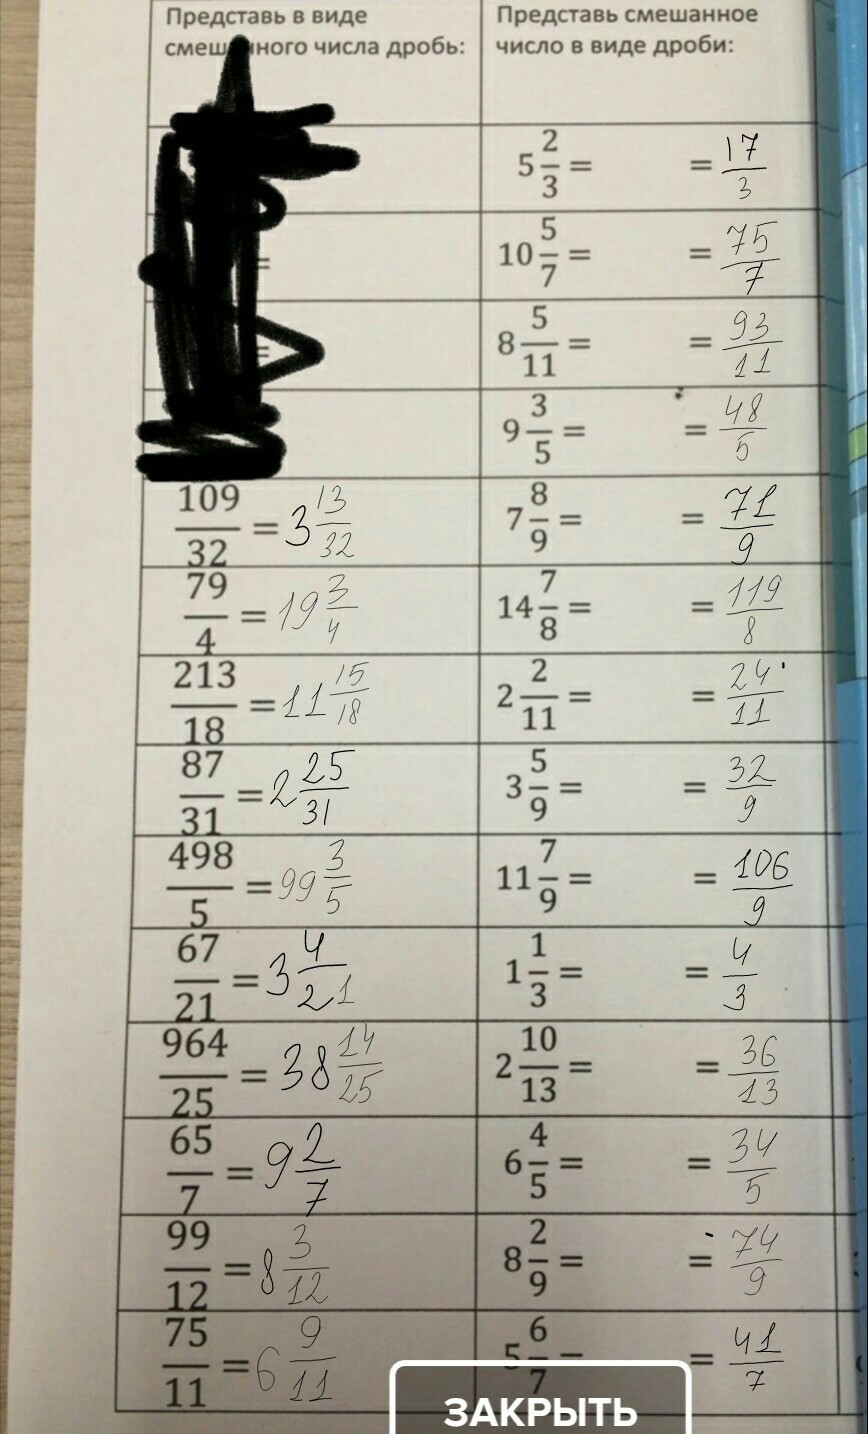 Представь в виде смешанного числа дробь:
Представь смешанное число в виде дроби:
5 2/3 = = 17/3
= 10 5/7 = = 75/7
= 8 5/11 = = 93/11
9 3/5 = = 48/5
109/32 = 3 13/32 7 8/9 = = 71/9
79/4 = 19 3/4 14 7/8 = = 119/8
213/18 = 11 15/18 2 2/11 = = 24/11
87/31 = 2 25/31 3 5/9 = = 32/9
498/5 = 99 3/5 11 7/9 = = 106/9
67/21 = 3 4/21 1 1/3 = = 4/3
964/25 = 38 14/25 2 10/13 = = 36/13
65/7 = 9 2/7 6 4/5 = = 34/5
99/12 = 8 3/12 8 2/9 = = 74/9
75/11 = 6 9/11 5 6/7 = = 41/7
ЗАКРЫТЬ